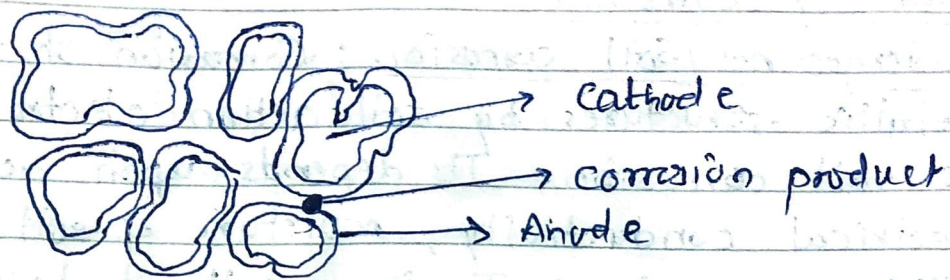 Cathode
Corrosion product
Anode